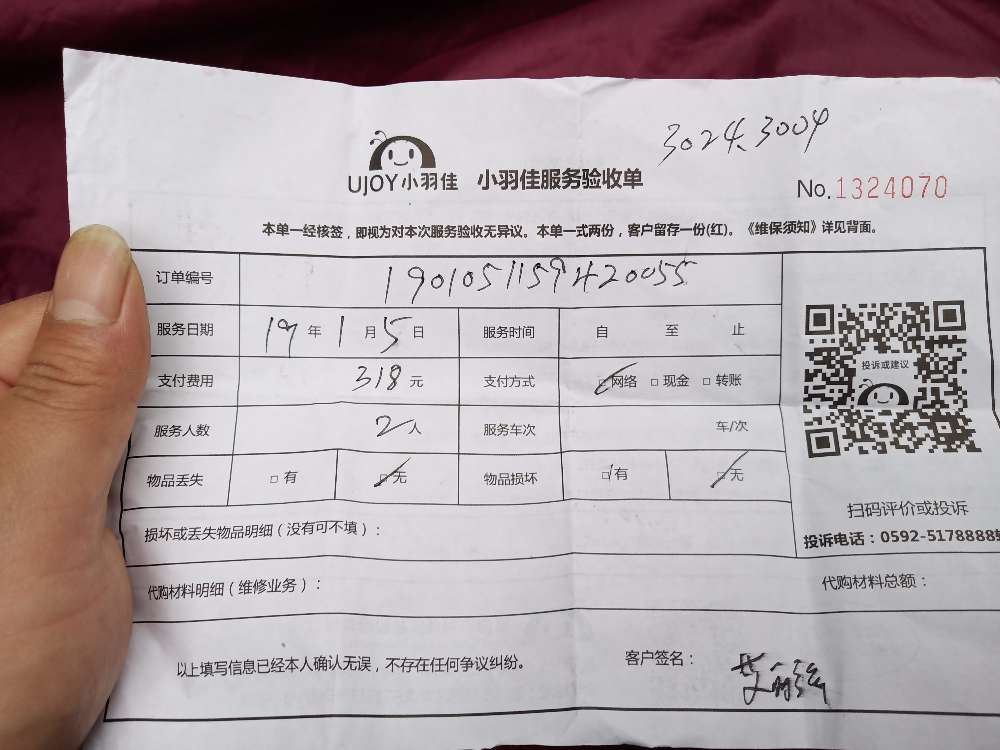 3024、3004
UJOY小羽佳 小羽佳服务验收单
No.1324070
本单一经核签，即视为对本次服务验收无异议。本单一式两份，客户留存一份(红)。《维保须知》详见背面。
订单编号 190105115942005​5
服务日期 19年1月5日 服务时间 自 至 止
支付费用 318元 支付方式 □网络 □现金 □转账
投诉或建议
服务人数 2人 服务车次 车/次
物品丢失 □有 □无 物品损坏 □有 □无
扫码评价或投诉
投诉电话：0592-5178888
损坏或丢失物品明细（没有可不填）：
代购材料明细（维修业务）： 代购材料总额：
以上填写信息已经本人确认无误，不存在任何争议纠纷。 客户签名：